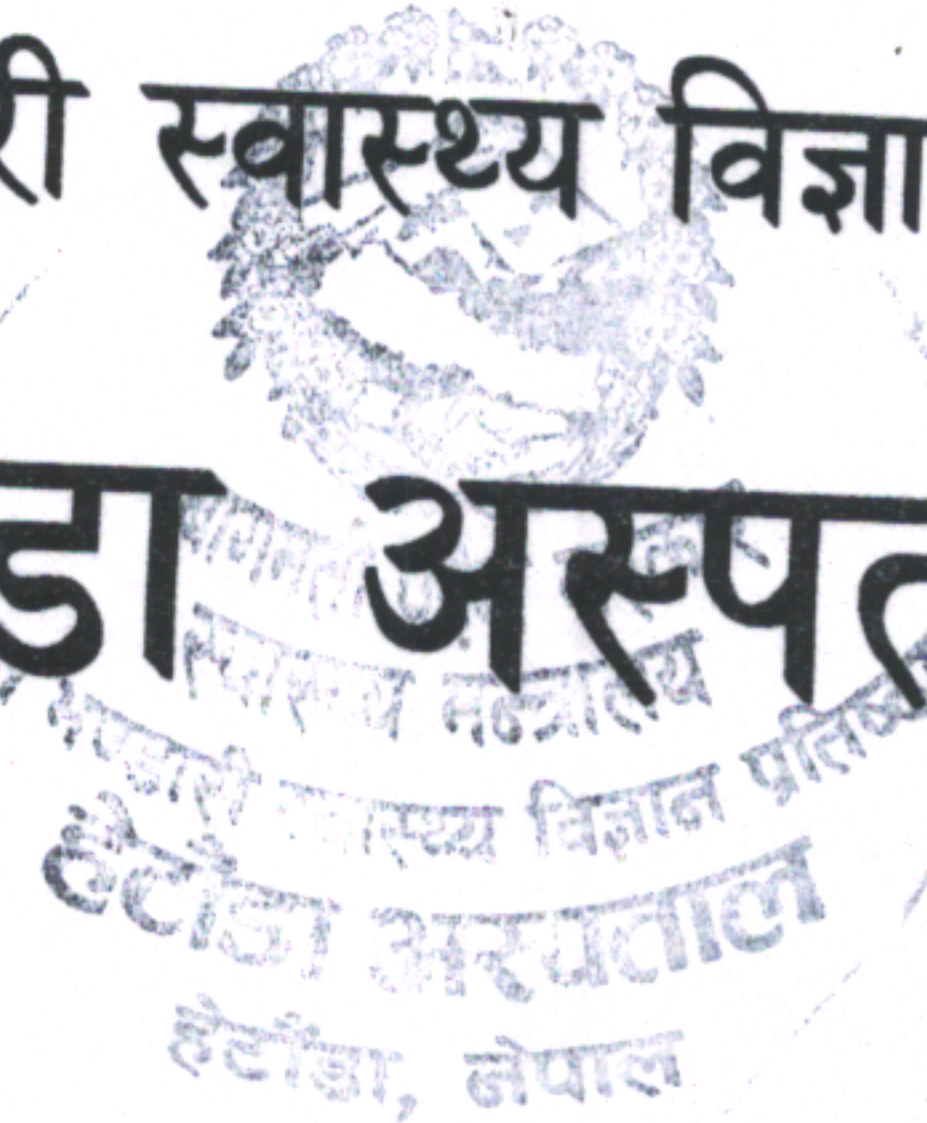 री स्वास्थ्य विज्ञा
डा अस्पत
स्वास्थ्य मन्त्रालय
भण्डारी स्वास्थ्य विज्ञान प्रतिष्ठा
हेटौंडा अस्पताल
हेटौंडा, नेपाल